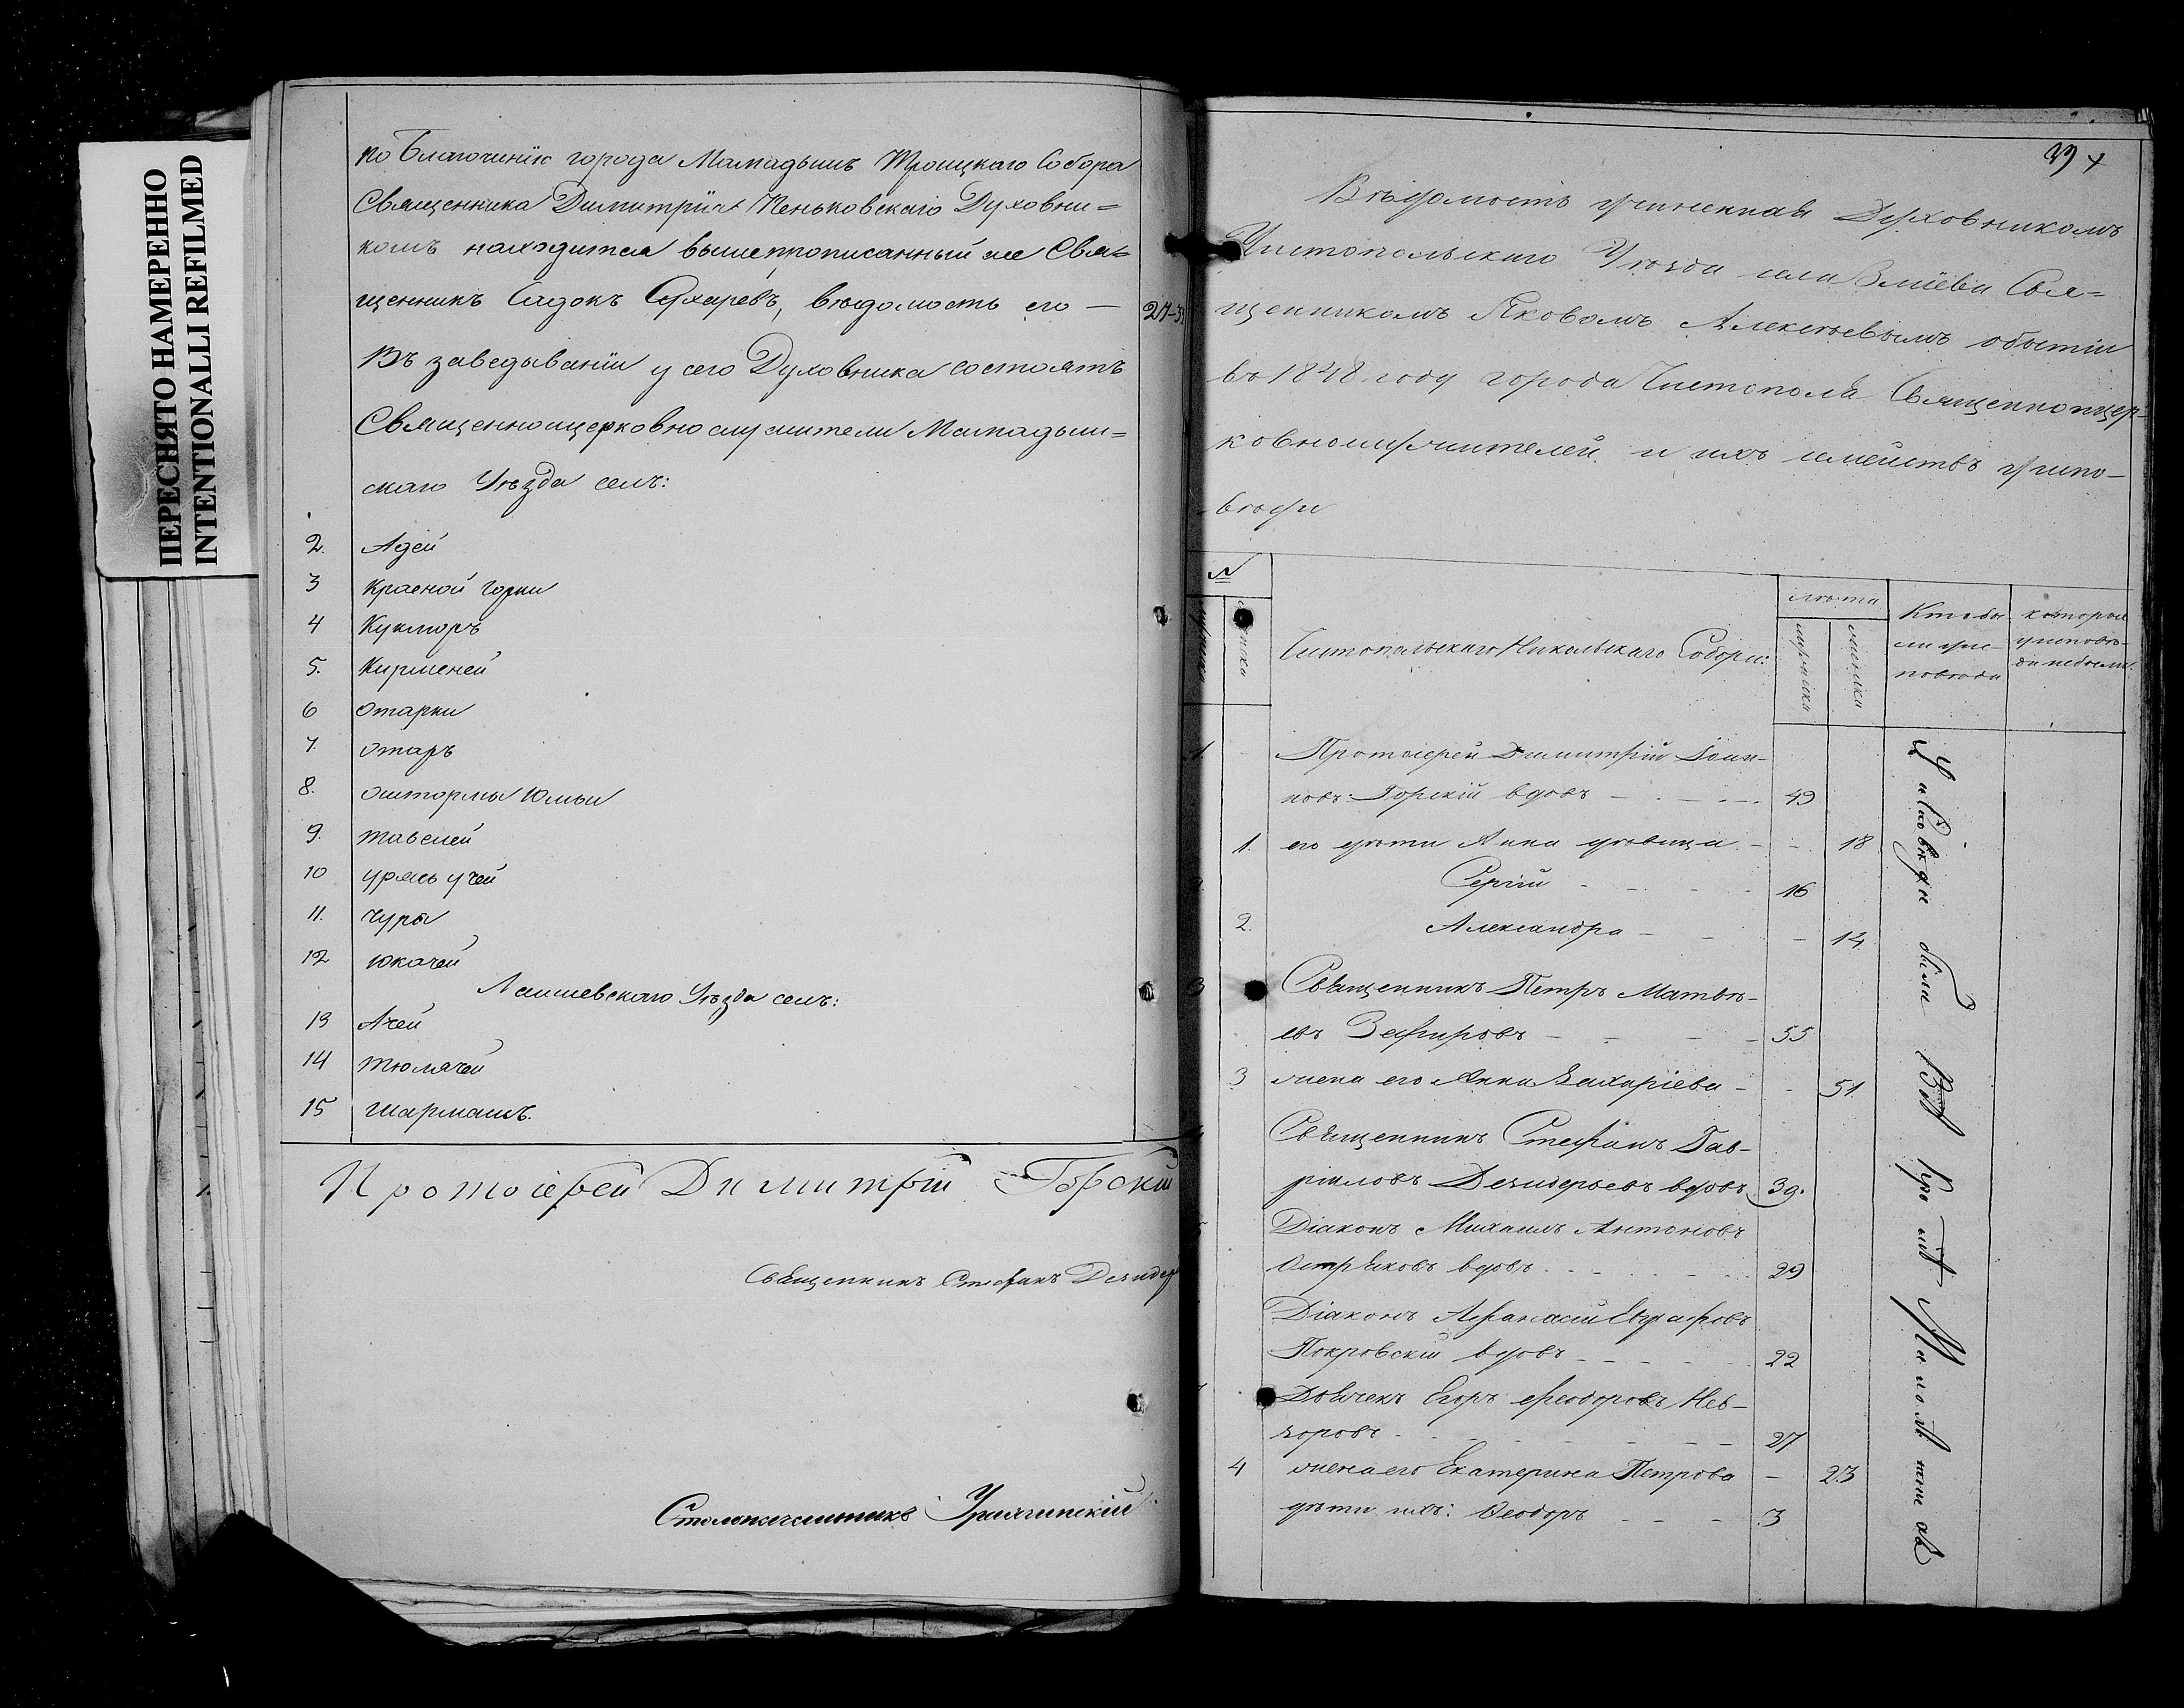 ПЕРЕСНЯТО НАМЕРЕННО
INTENTIONALLI REFILMED
по Благочинію города Мамадышъ Троицкаго Собора
Священника Димитрія Пеньковскаго Духовни=
комъ находится вышепрописанный же Свя=
щенникъ Садокъ Сухаревъ, вѣдомость его —
27-3
Въ заведываніи у сего Духовника состоятъ
Священноцерковнослужители Мамадыш=
скаго Уѣзда селъ:
2. Адей
3 Красной горки
4 Кукморъ
5. Кирменей
6 Отарки
7. Отаръ
8. Ошторма Юмьи
9. Тавелей
10 Урясь учей
11. Чуры
12 Юкачей
Лаишевскаго Уѣзда селъ:
13 Ачей
14 Тюлячей
15 Шармашъ.
Протоіерей Димитрій Горскій
Священникъ Стефанъ Дезидер
Столоначальникъ
39
Вѣдомость учиненная Духовникомъ
Чистопольскаго Уѣзда села Змiева Свя=
щенникомъ Яковомъ Алексѣевымъ о бытіи
въ 1848 году города Чистополя Священноцер-
ковнослужителей и ихъ семействъ у испо-
вѣди
№
мужеска
женска
Чистопольскаго Никольскаго Собора:
лѣта
мужеска
женска
Кто бы
ли у ис-
повѣди
которые
у исповѣ-
ди не были
1. Протоіерей Димитрій Іоан-
новъ Горскій вдовъ — 49
1. его дѣти Анна дѣвица — 18
Сергій — 16
2. Александра — 14
3 Священникъ Петръ Матвѣ-
евъ Зефировъ — 55
3 жена его Анна Захаріева — 51
Священникъ Стефанъ Гав-
ріиловъ Дезидерьевъ вдовъ 39.
Діаконъ Михаилъ Антоновъ
Остряковъ вдовъ 29
Діаконъ Афанасій Евграфовъ
Покровскій вдовъ 22
Дьячекъ Егоръ Феодоровъ Нев-
зоровъ 27
4 жена его Екатерина Петрова — 23
дѣти ихъ: Ѳеодоръ — 3
У исповѣди были Всѣ кромѣ Малолѣтновъ